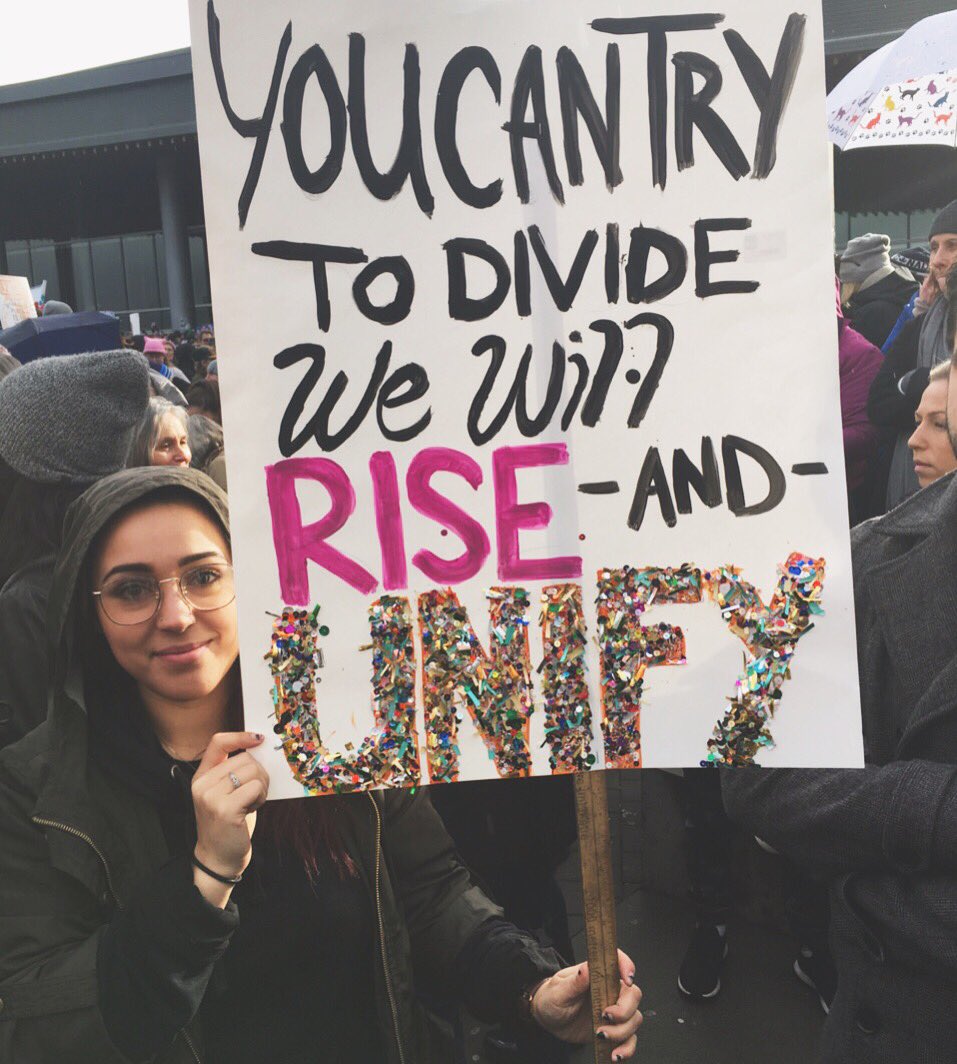 YOU CAN TRY
TO DIVIDE
We Will
RISE -AND-
UNIFY